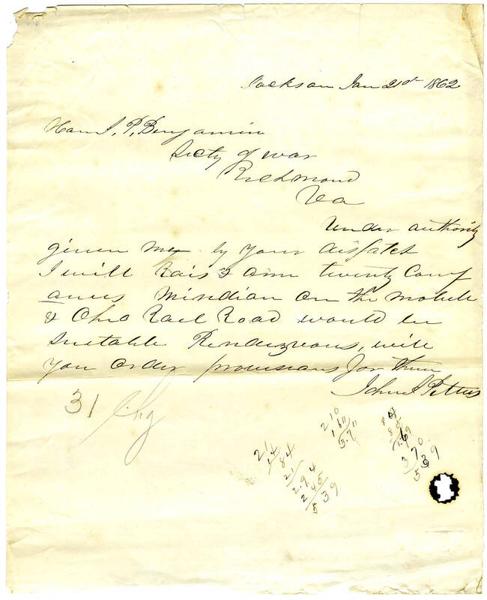 Jackson Jan 21st 1862
Hon J. P. Benjamin
Secty of war
Richmond
Va
Under authority
given me by your dispatch
I will Rais & arm twenty Comp
anies Meridian on the Mobile
& Ohio Rail Road would be
suitable Rendezvous, will
you order provisions for them
John J Pettus
31 Chg
210
160
5.7"
21
14
84
21
294
245
539
169
370
539